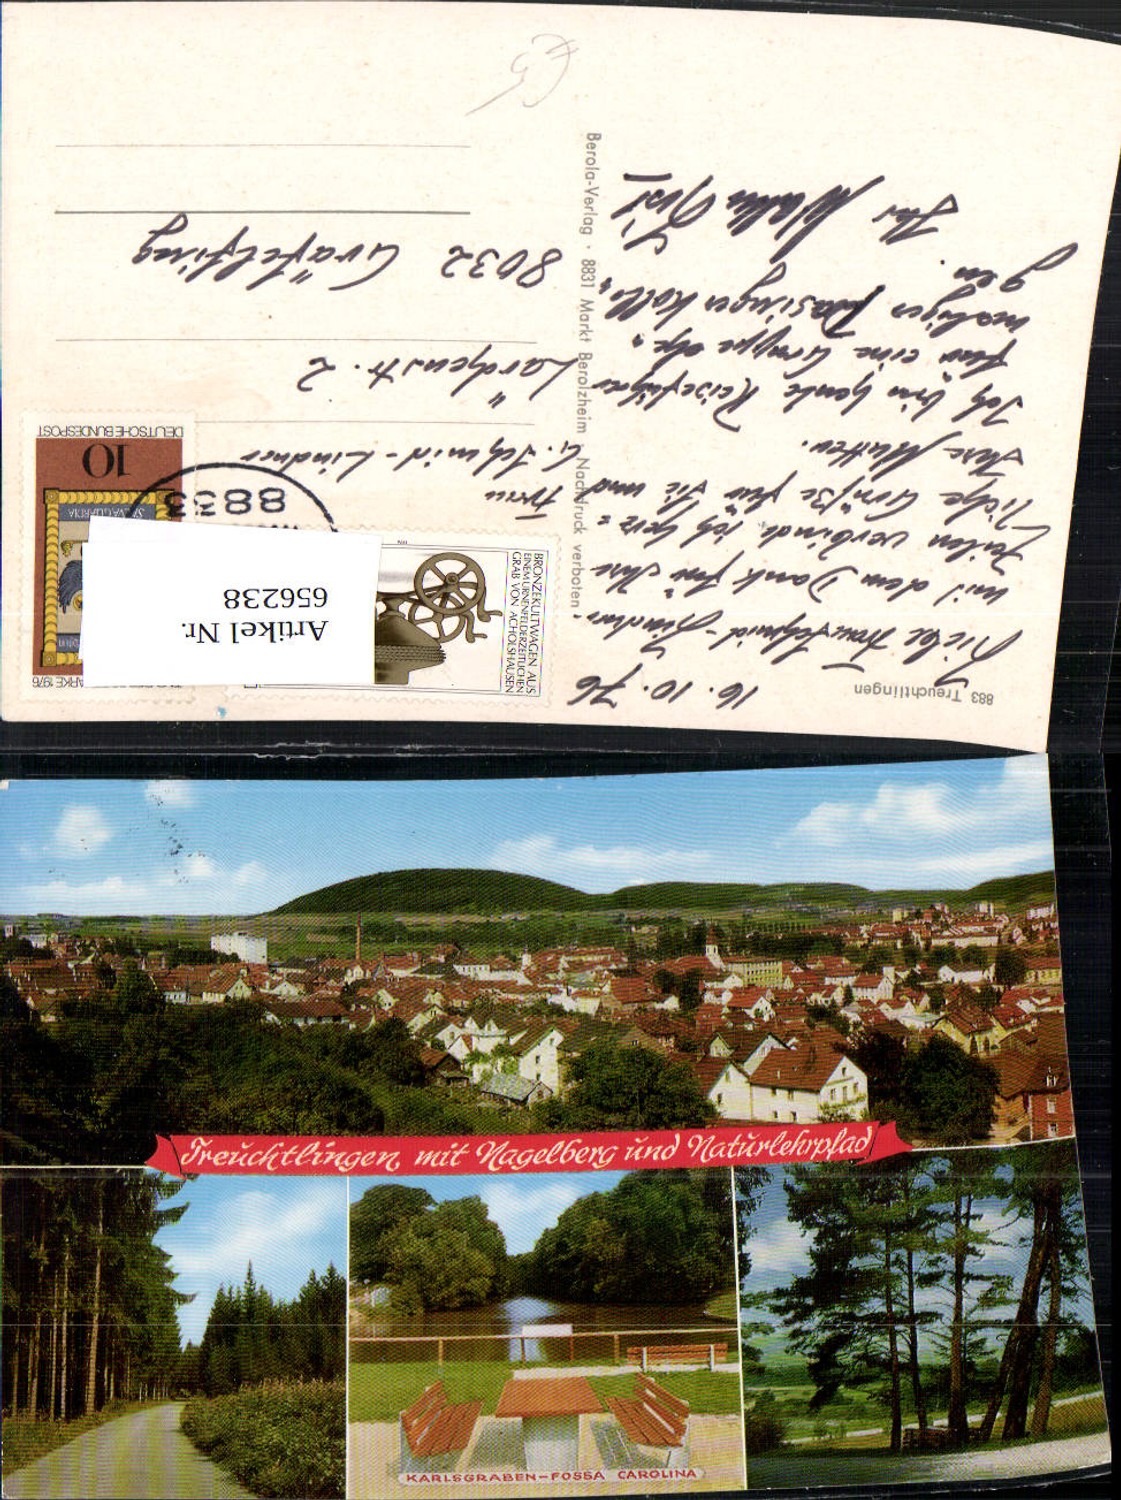 883 Treuchtlingen
16. 10. 76
Liebe Frau Schmid-Lindner-
mit dem Dank für Ihre
Zeilen verbinde ich herz=
liche Grüße für Sie und
Ihre Mutter.
Ich bin heute Reiseführer
für eine Gruppe
Pasinger
gen.
Ihr
Berola-Verlag · 8831 Markt Berolzheim · Nachdruck verboten
BRONZEKULTWAGEN AUS
EINEM URNENFELDERZEITLICHEN
GRAB VON ACHOLSHAUSEN
DEUTSCHE BUNDESPOST
10
SALVAGUARDIA
8833
Artikel Nr.
656238
Frau
G. Schmid-Lindner
Lärchenstr. 2
8032 Gräfelfing
Treuchtlingen mit Nagelberg und Naturlehrpfad
KARLSGRABEN-FOSSA CAROLINA